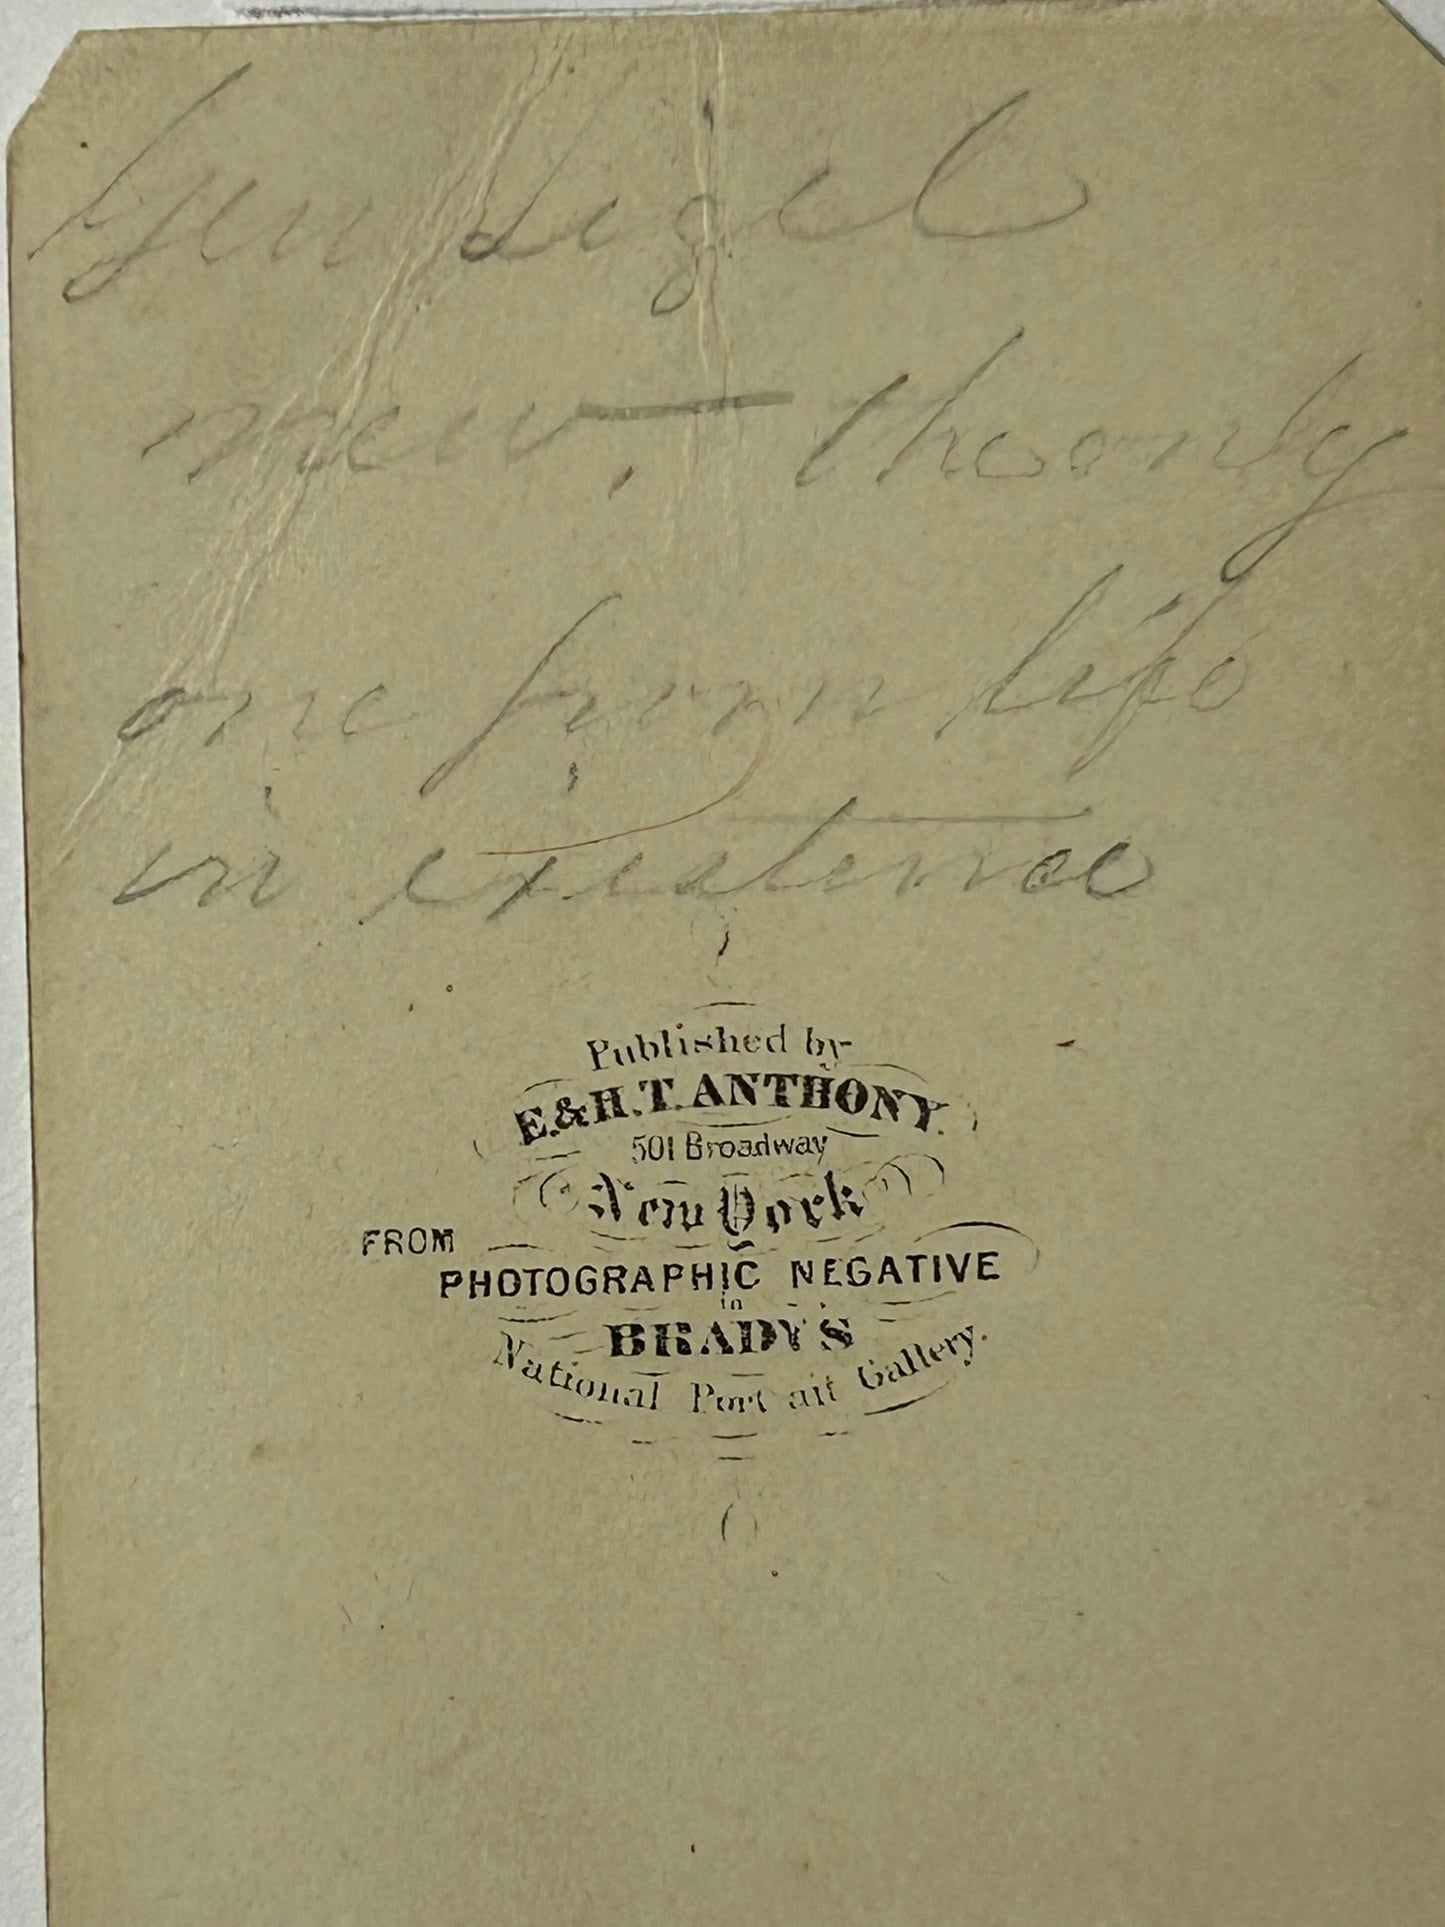 Gen Sigel
new, - the only
one from life
in existence
Published by
E. & H. T. ANTHONY.
501 Broadway
New York
FROM
PHOTOGRAPHIC NEGATIVE
in
BRADY'S
National Portrait Gallery.